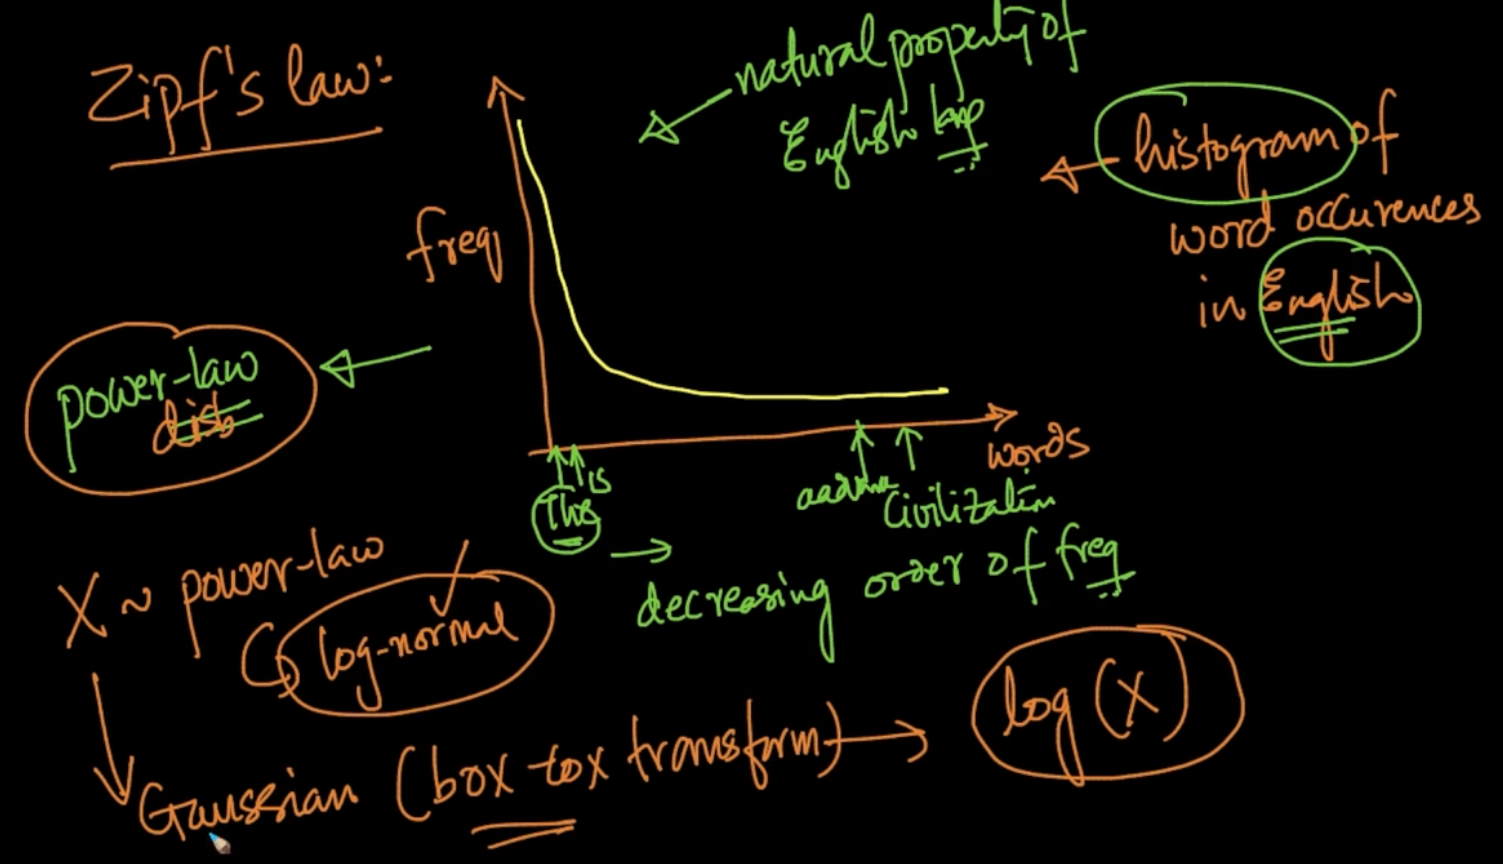 Zipf's law:
natural property of
English
histogram of
word occurences
in English
freq
power-law
words
is
This
Civilization
decreasing order of freq
X ~ power-law
log-normal
Gaussian (box-cox transform) → log (X)